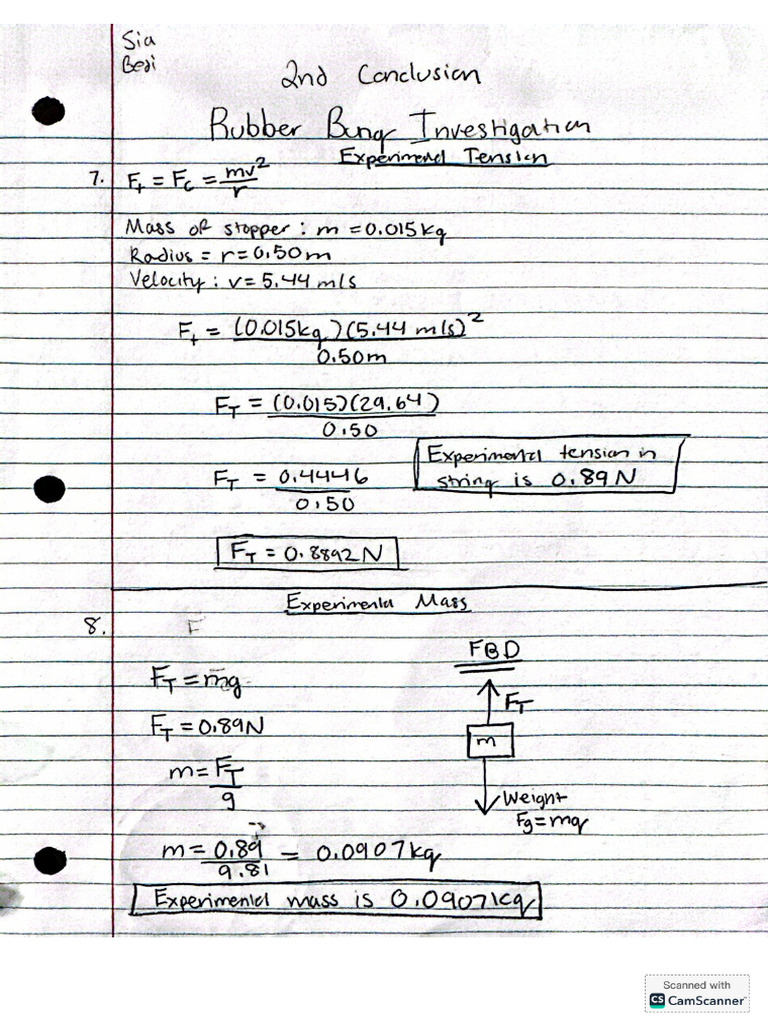 Sia
Bedi
2nd Conclusion
Rubber Bung Investigation
Experimental Tension
7. F_t = F_c = mv²/r
Mass of stopper : m = 0.015kg
Radius = r = 0.50m
Velocity : v = 5.44 m/s
F_t = (0.015kg)(5.44 m/s)²/0.50m
F_T = (0.015)(29.64)/0.50
F_T = 0.4446/0.50
Experimental tension in
string is 0.89N
F_T = 0.8892N
Experimental Mass
8. F
FBD
F_T = mg
F_T
F_T = 0.89N
m
m = F_T/g
Weight
Fg = mg
m = 0.89/9.81 = 0.0907kg
Experimental mass is 0.0907kg
Scanned with
CS CamScanner